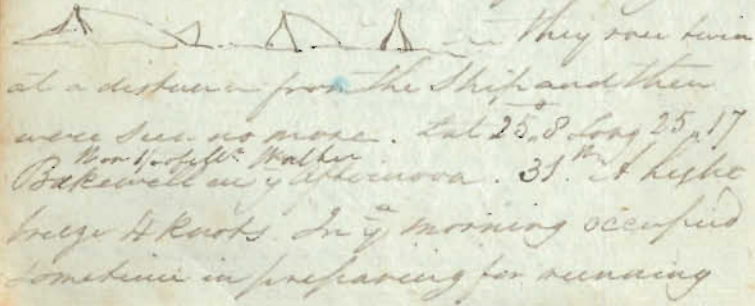 they rose twice
at a distance from the Ship and then
were seen no more. Lat 25°,,8 Long 25,,17
Walker
Bakewell in yͤ afternoon. 31. A light
breeze 4 knots. In yͤ morning occupied
sometime in preparing for running